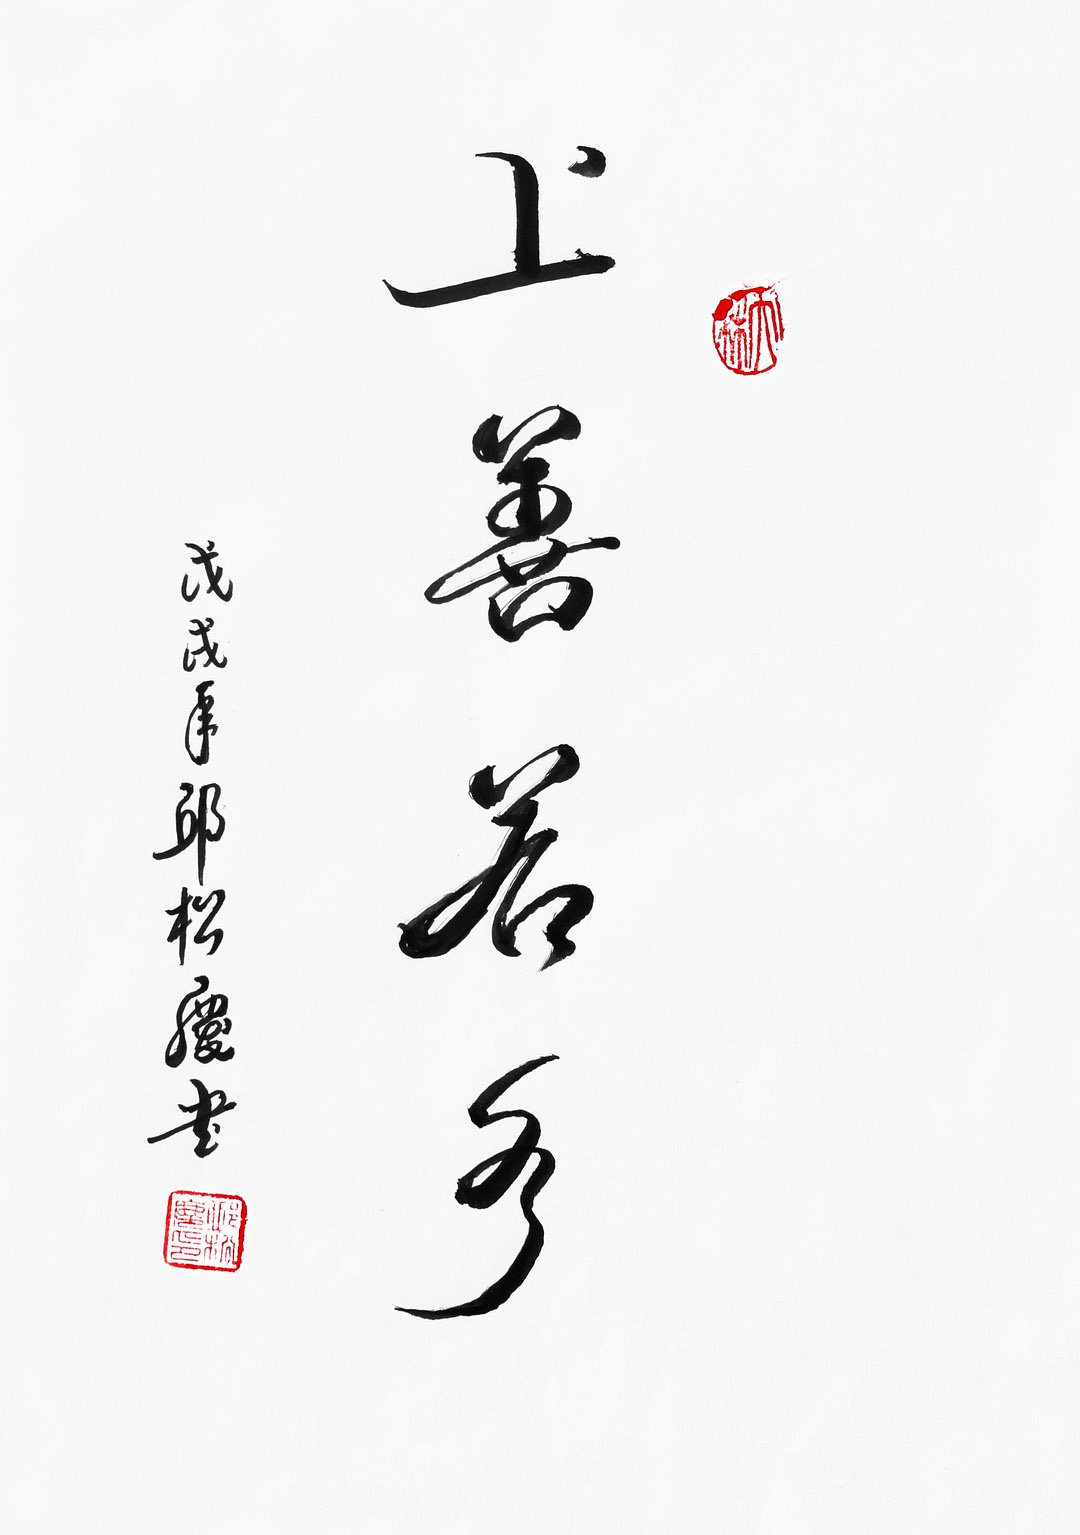 上善若水
戊戌年邱松庆书